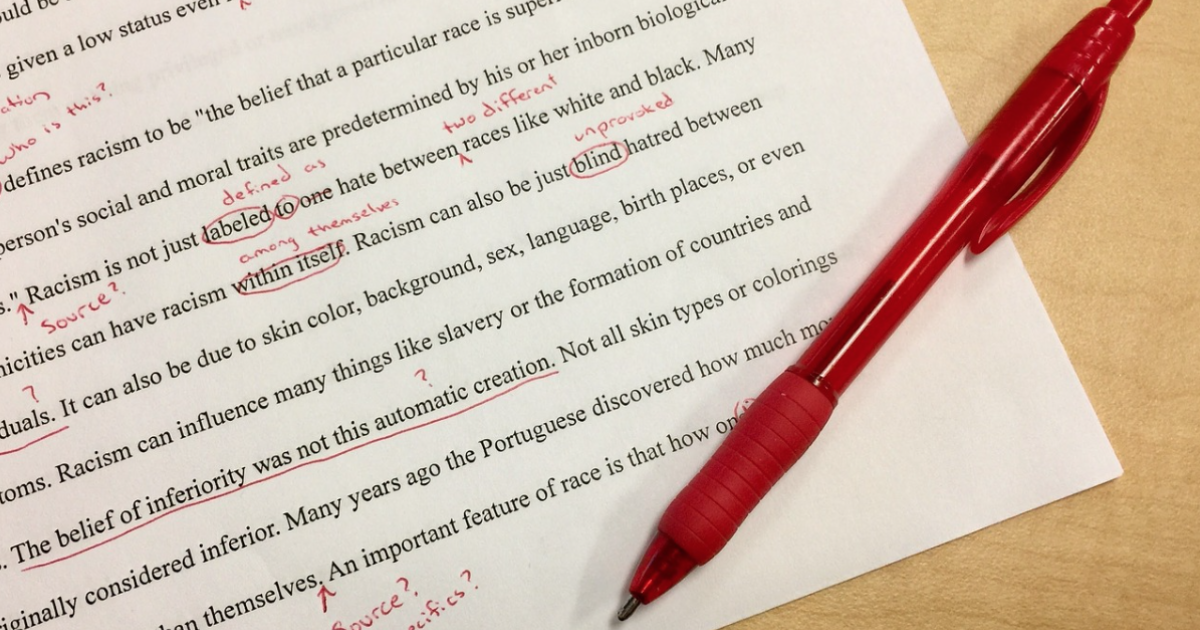 given a low status even
who is this?
defines racism to be "the belief that a particular race is
person's social and moral traits are predetermined by his or her inborn
two different
defined as
." Racism is not just labeled to one hate between races like white and black. Many
Source?
unprovoked
among themselves
can have racism within itself. Racism can also be just blind hatred between
?
It can also be due to skin color, background, sex, language, birth places, or even
Racism can influence many things like slavery or the formation of countries and
?
The belief of inferiority was not this automatic creation. Not all skin types or colorings
considered inferior. Many years ago the Portuguese discovered how much
themselves. An important feature of race is that how
Source?